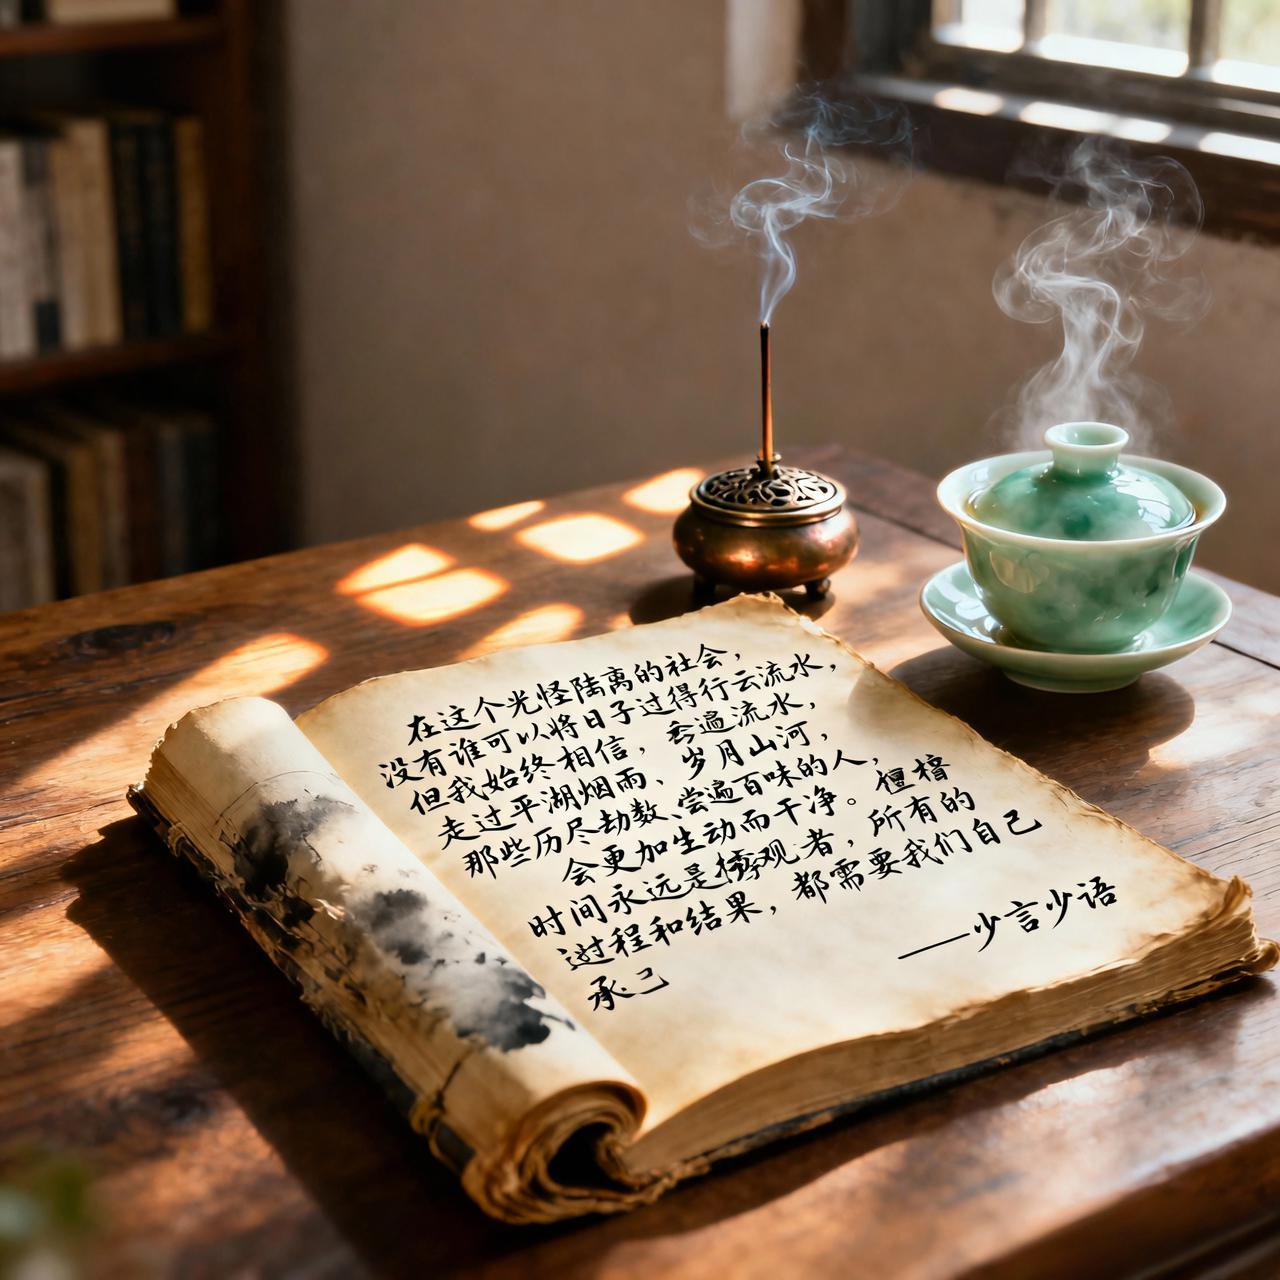 在这个光怪陆离的社会，
没有谁可以将日子过得行云流水，
但我始终相信，遍流水，
走过平湖烟雨、岁月山河，
那些历尽劫数、尝遍百味的人，
会更加生动而干净。
时间永远是观者，所有的
过程和结果，都需要我们自己
承己
——少言少语